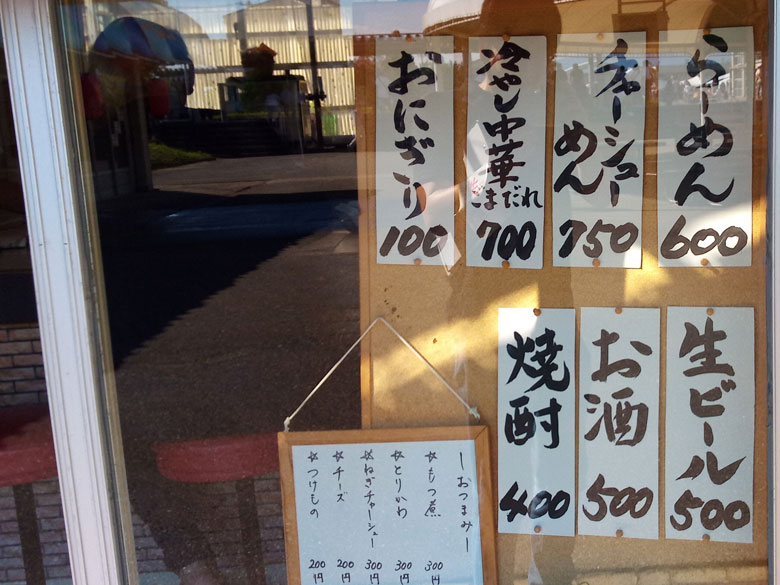 らーめん
600
チャーシュー
めん
750
冷やし中華
ごまだれ
700
おにぎり
100
生ビール
500
お酒
500
焼酎
400
ーおつまみー
☆もつ煮 300円
☆とりかわ 300円
☆ねぎチャーシュー 300円
☆チーズ 200円
☆つけもの 200円